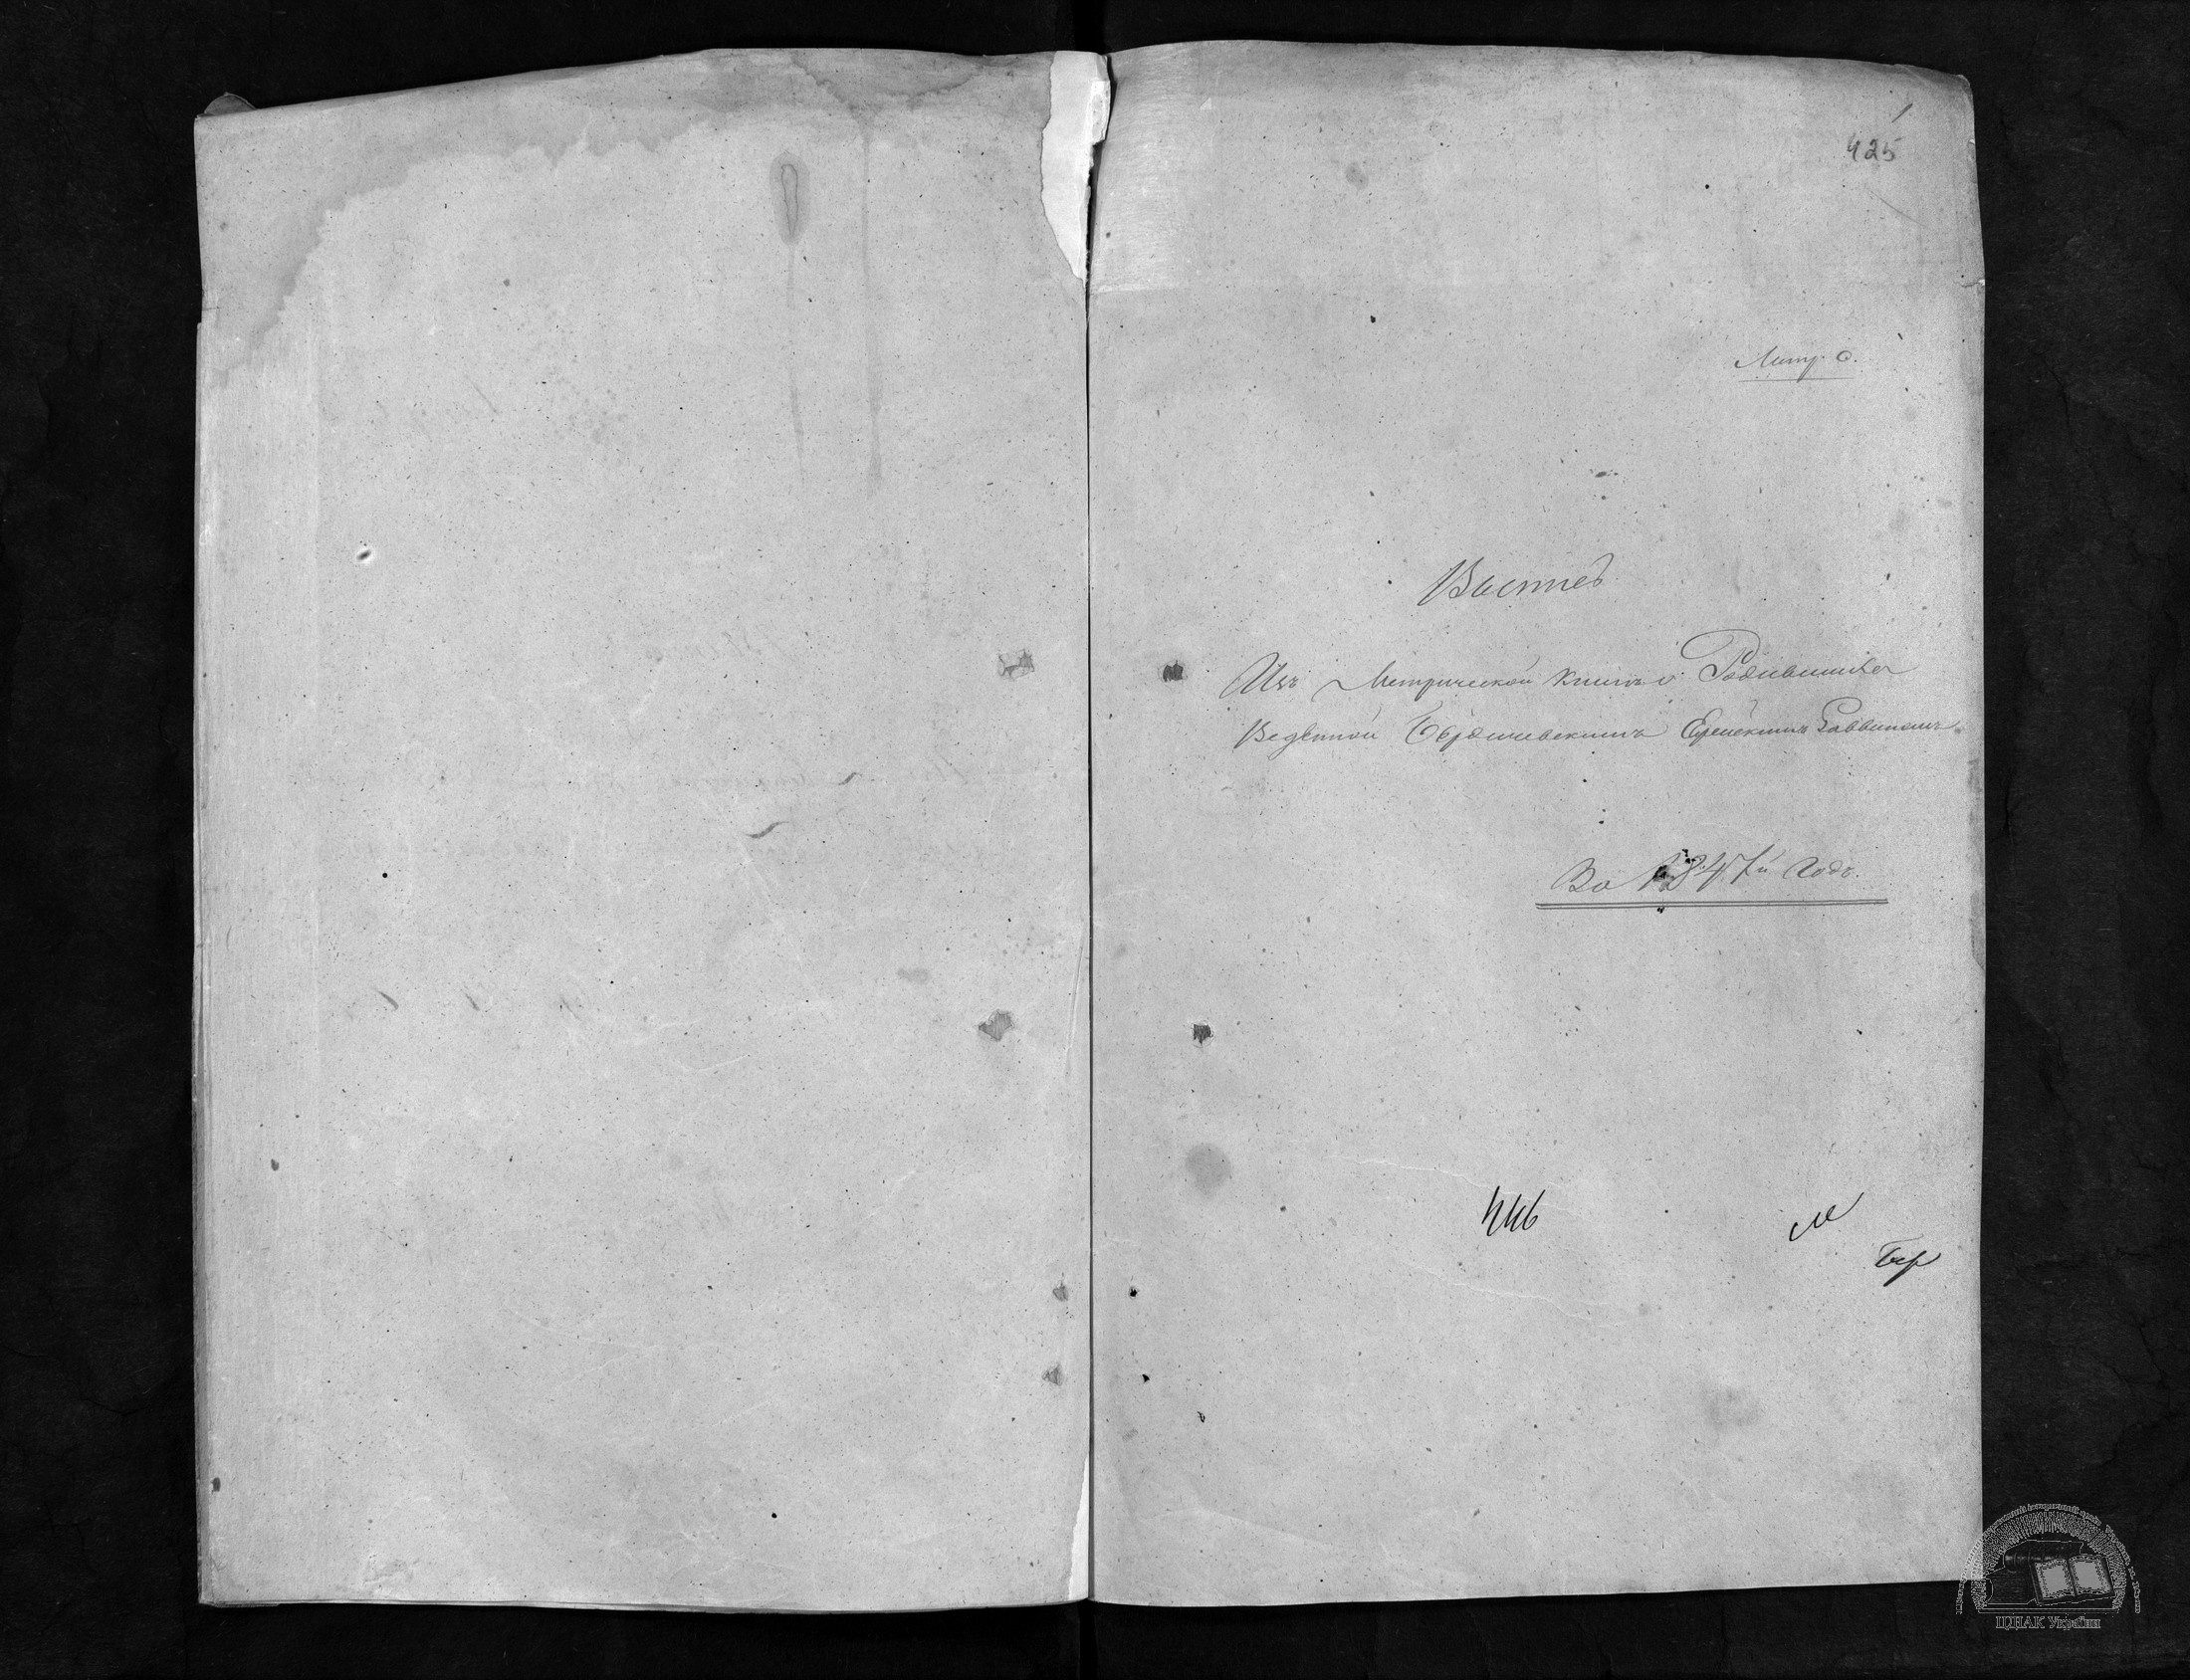 1
425
Литр С.
Выписъ
Изъ Метрической книги о Родившихся
Веденной Бердичевскимъ Еврейскимъ Раввиномъ
За 1847й Годъ.
446
М
Бер
ЦДІАК України